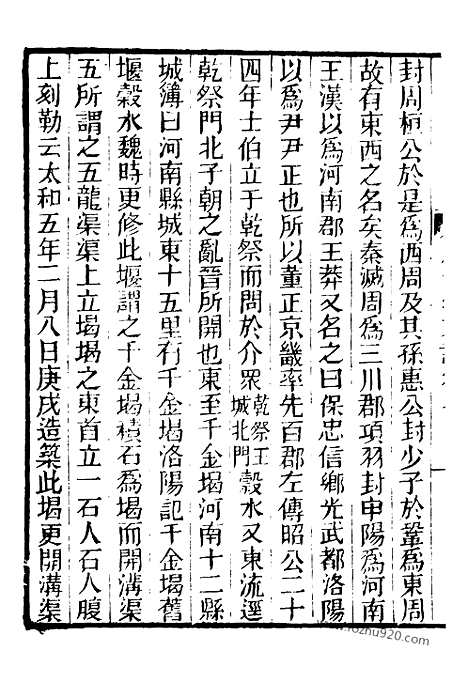 封周桓公於是爲西周及其孫惠公封少子於鞏爲東周
故有東西之名矣秦滅周爲三川郡項羽封申陽爲河南
王漢以爲河南郡王莽又名之曰保忠信鄉光武都洛陽
以爲尹尹正也所以董正京畿率先百郡左傳昭公二十
四年士伯立于乾祭而問於介眾乾祭王城北門穀水又東流逕
乾祭門北子朝之亂晉所開也東至千金堨河南十二縣
城簿曰河南縣城東十五里有千金堨洛陽記千金堨舊
堰穀水魏時更修此堰謂之千金堨積石爲堨而開溝渠
五所謂之五龍渠渠上立堨堨之東首立一石人石人腹
上刻勒云太和五年二月八日庚戌造築此堨更開溝渠
www.10zhu920.com